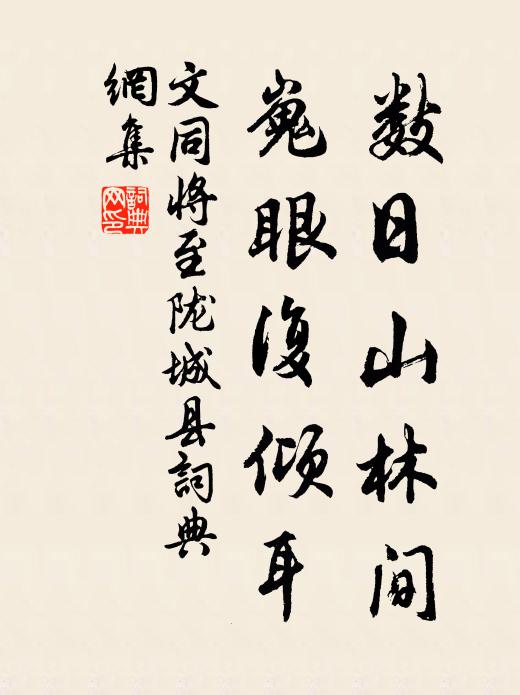 数日山林间
嵬眼復倾耳
文同将至陇城县詞典
網集
詞典
网印